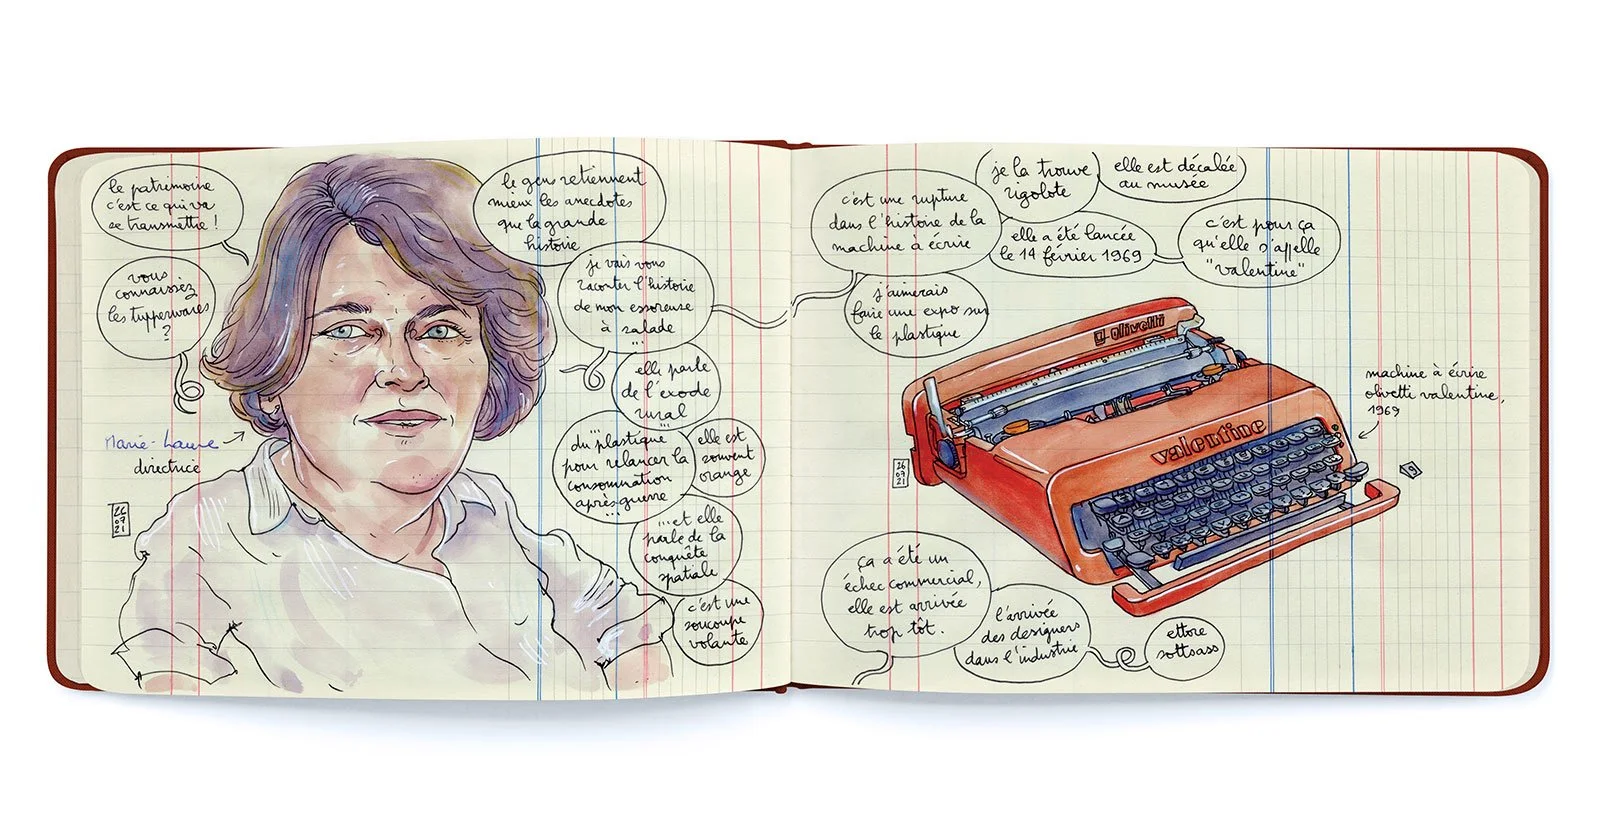 le patrimoine
c'est ce qui va
se transmettre !
vous
connaissez
les tupperwares
?
Marie-Laure
directrice
26
07
21
les gens retiennent
mieux les anecdotes
que la grande
histoire
je vais vous
raconter l'histoire
de mon essoreuse
à salade
...
elle parle
de l'exode
rural
...
du plastique
pour relancer la
consommation
après guerre
...
elle est
souvent
orange
...et elle
parle de la
conquête
spatiale
c'est une
soucoupe
volante
c'est une rupture
dans l'histoire de la
machine à écrire
je la trouve
rigolote
elle est décalée
au musée
elle a été lancée
le 14 février 1969
c'est pour ça
qu'elle s'appelle
"valentine"
j'aimerais
faire une expo sur
le plastique
olivetti
valentine
machine à écrire
olivetti valentine,
1969
26
07
21
ça a été un
échec commercial,
elle est arrivée
trop tôt.
l'arrivée
des designers
dans l'industrie
ettore
sottsass